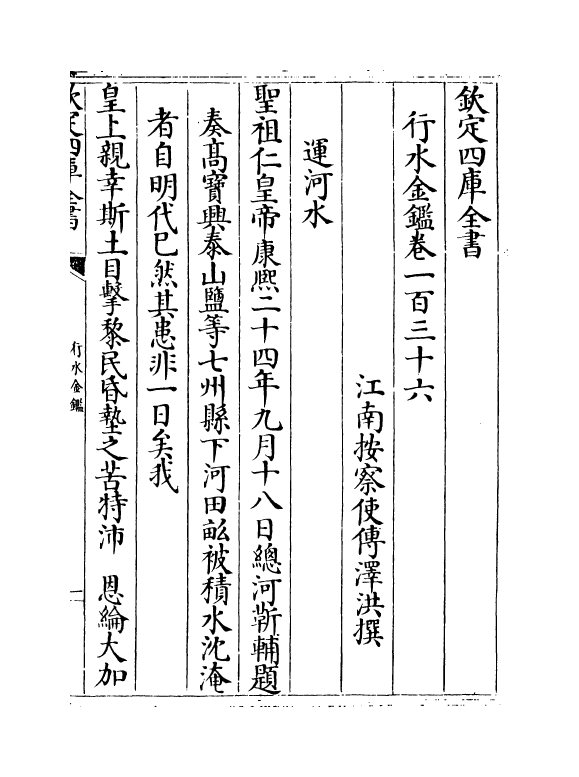 欽定四庫全書
行水金鑑卷一百三十六
江南按察使傅澤洪撰
運河水
聖祖仁皇帝康熙二十四年九月十八日總河靳輔題
奏髙寶興泰山鹽等七州縣下河田畝被積水沈淹
者自明代已然其患非一日矣我
皇上親幸斯土目擊黎民昏墊之苦特沛　恩綸大加
欽定四庫全書
行水金鑑
一